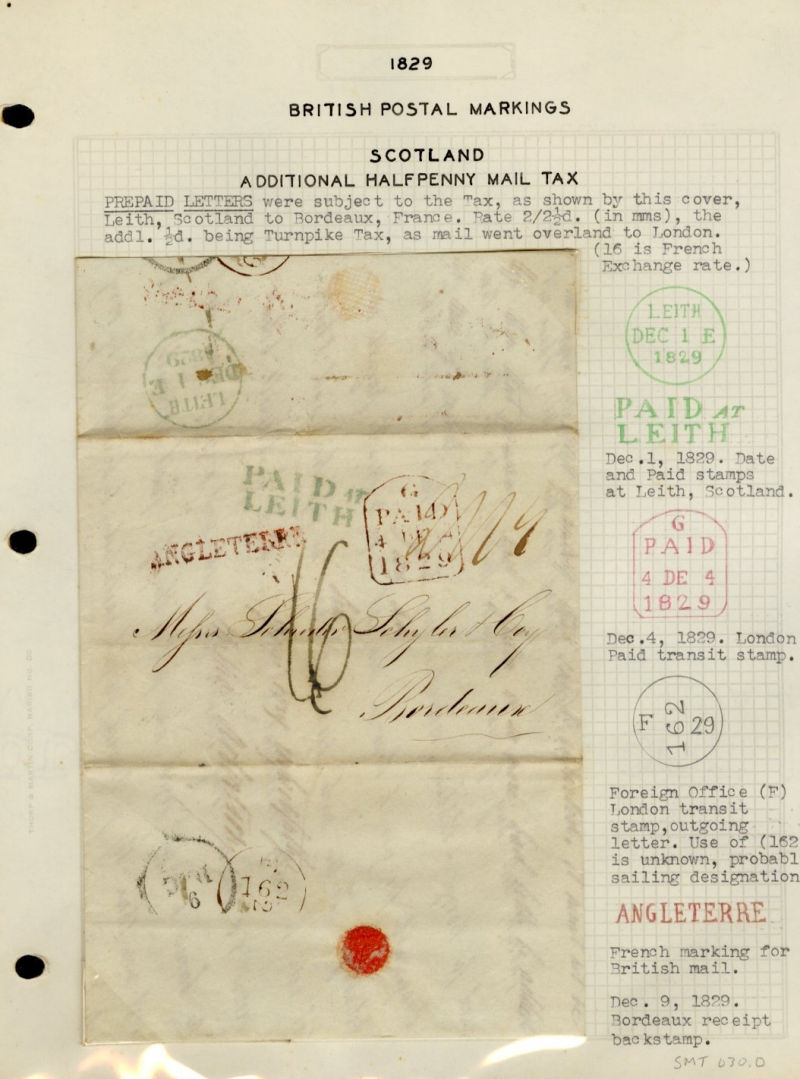 1829
BRITISH POSTAL MARKINGS
SCOTLAND
ADDITIONAL HALFPENNY MAIL TAX
PREPAID LETTERS were subject to the Tax, as shown by this cover,
Leith, Scotland to Bordeaux, France. Rate 2/2½d. (in mms), the
addl. ½d. being Turnpike Tax, as mail went overland to London.
(16 is French
Exchange rate.)
LEITH
DEC 1 E
1829
PAID AT
LEITH
Dec.1, 1829. Date
and Paid stamps
at Leith, Scotland.
G
PAID
4 DE 4
1829
Dec.4, 1829. London
Paid transit stamp.
F 162 29
Foreign Office (F)
London transit
stamp,outgoing
letter. Use of (162
is unknown, probabl
sailing designation
ANGLETERRE
French marking for
British mail.
Dec. 9, 1829.
Bordeaux receipt
backstamp.
SMT 630.0
1829
DE 1 E
LEITH
PAID AT
LEITH
ANGLETERRE
G
PAID
4 DE
1829
16
Messrs Schyler & Coy
Bordeaux
162